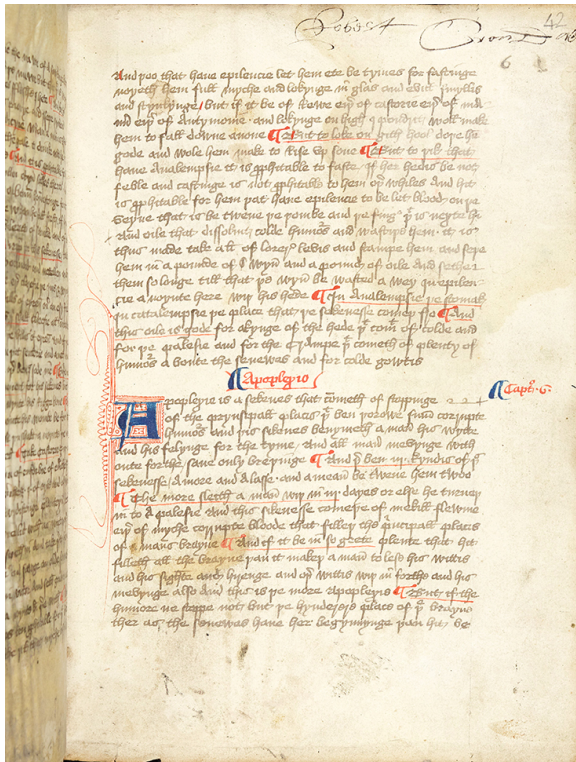 42
Robert
6
And poo that have epilencie let hem ete be tymes for fastinge
noyeth hem full myche and lokynge in glas and evill smyllis
and stynkynge / but if it be of
and of Antymonie and lokynge on high
hem to fall downe anone ¶ But to loke on pich hool dope he
gode and wole hem make to rise up sone ¶ But to þilk that
have Analempsie it is ꝓphitable to faste if her hedis be not
feble and castinge is not ꝓphitable to hem oþ whiles and hit
is ꝓphitable for hem þat have epilencie to be let blood on þe
veyne that is be twene þe þombe and þe
And oile that dissoluiþ colde humoꝰs and wastiþ hem it is
thus made take all of lorer levis and stampe hem and seþe
hem in a pounde of wyn and a pounde of oile and sethe
them so longe till that þe wyn be wasted a wey in epilen
cie anoynte here wiþ his hede ¶ In Analempsie þe stomak
in catalempsie þe place that þe sekenesse comeþ fro ¶ And
this oile is gode for akynge of the hede þt comeþ of colde and
for þe palesie and for the Crampe þt cometh of plenty of
humoꝰs a boute the senewes and for colde gowtis
¶ Apoplexio
¶ Capm. 6.
Apoplexie is a sekenes that cometh of stoppinge
of the prynsipall placis þt ben þorow sum corrupte
humoꝰs and þis sikenes benymeth a man his witte
and his felynge for the tyme and all maner mevynge with
oute forthe save only breþinge ¶ And þer ben iij kyndis of þis
sekenesse A more and a lasse and a meane be twene hem twoo
¶ The more sleeth a man wiþ in iij dayes or else he turneþ
in to a palesie and this sikenesse comeþ of mekill flewme
eiþer of myche corrupte bloode that filleþ the principall placis
of a mans brayne ¶ And if it be in so grete plente that hit
filleth all the brayne þan it makeþ a man to lese his wittis
and his sighte and hyenge and oþer wittis wiþ in forthe and his
mevynge also and this is þe more Apoplexis ¶ But if the
humore ne stoppe not but þe hyndeste place of þe brayne
ther as the senewes have her begynnynge þan hit be